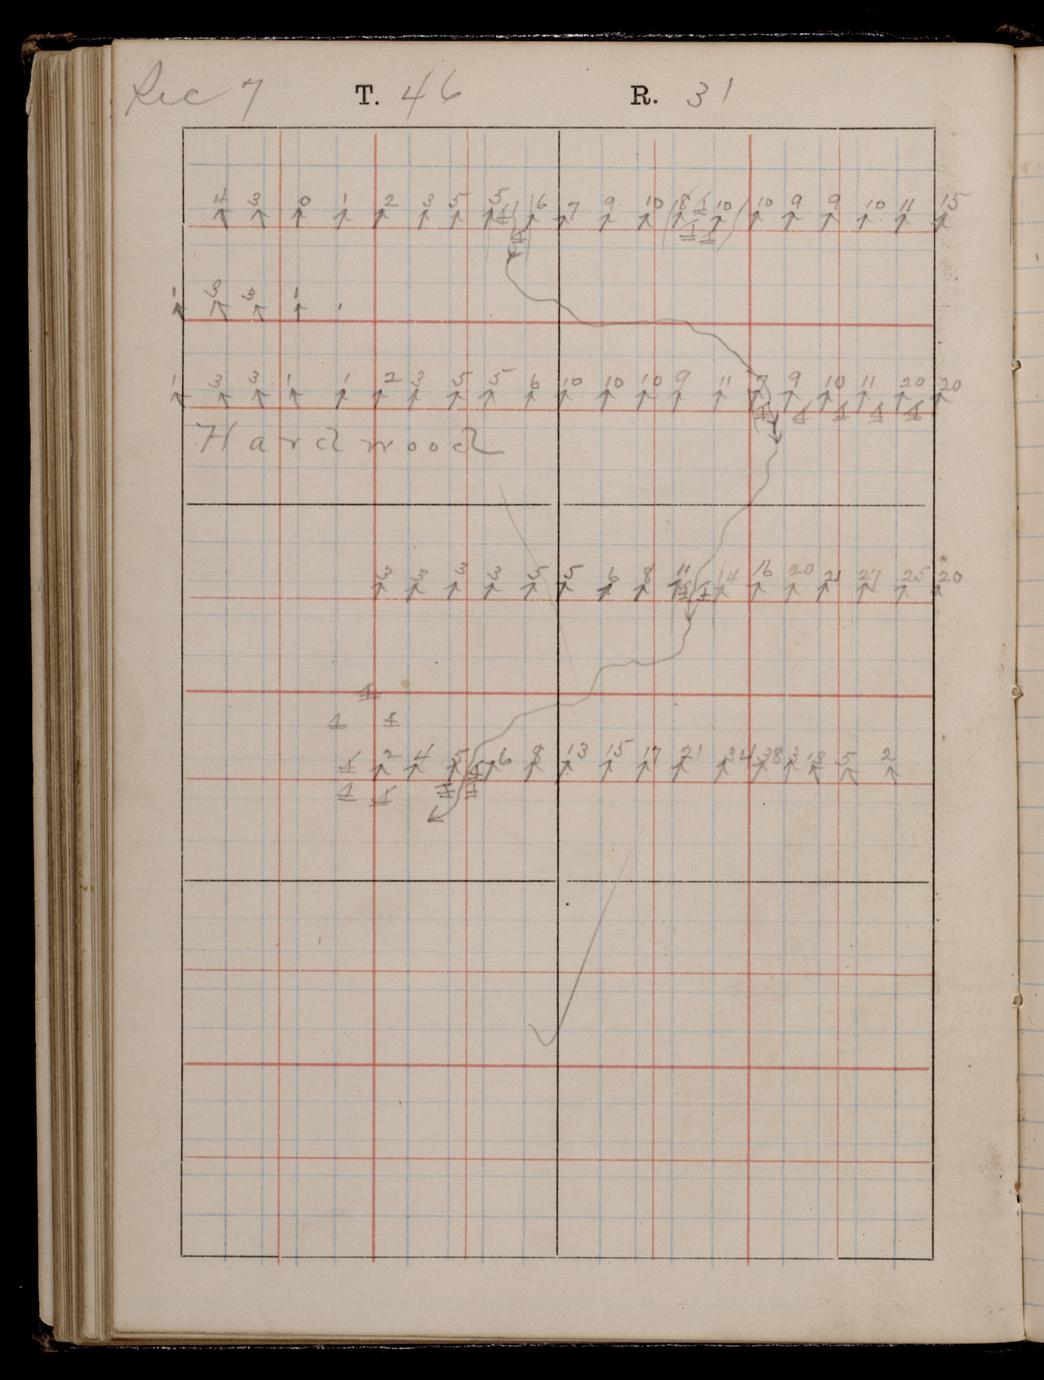 Sec 7 T. 46 R. 31
4 3 0 1 2 3 5 5 16 7 9 10 18 5 10 10 9 9 10 11 15
1 3 3 1 1
1 3 3 1 1 2 3 5 5 6 10 10 10 9 11 7 9 10 11 20 20
Hardwood
3 3 3 3 5 5 6 8 11 14 16 20 21 27 25 20
2 4 5 6 8 13 15 17 21 34 38 3 13 5 2